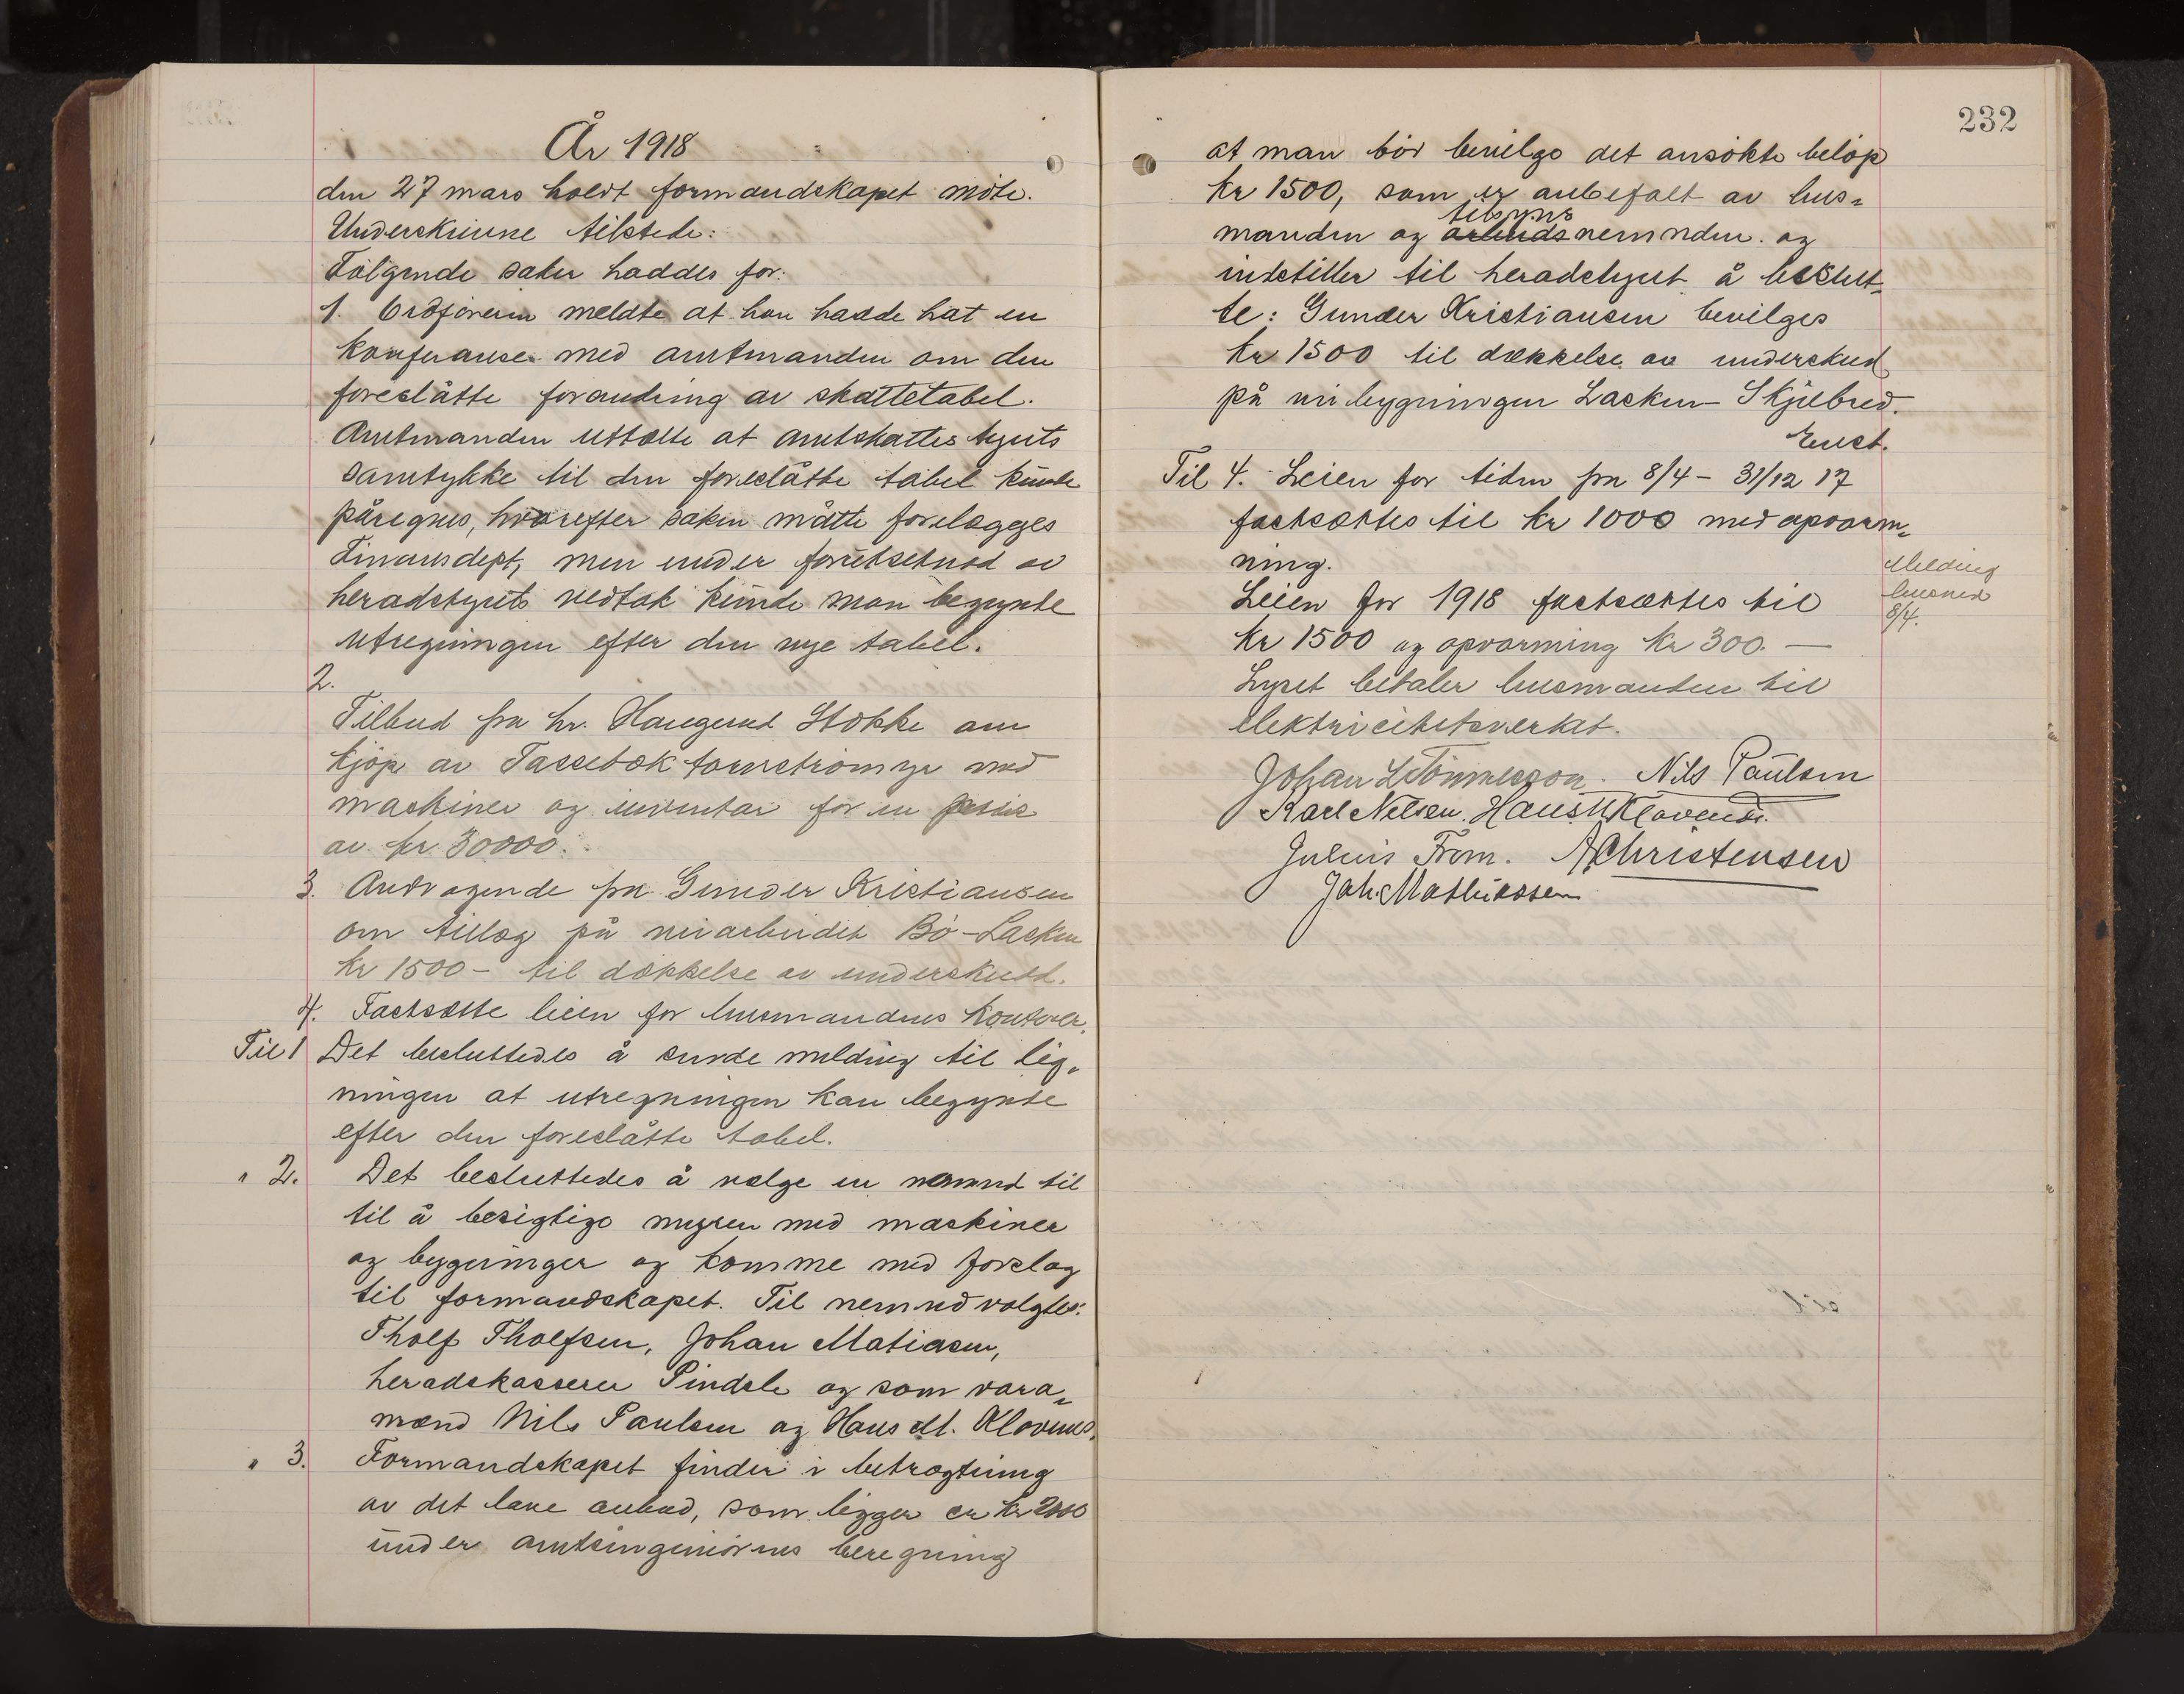 År 1918
den 27 mars holdt formandskapet møte.
Underskrevne tilstede:
Følgende saker haddes for:
1. Ordføreren meldte at han hadde hat en
konferanse med amtmanden om den
foreslåtte forandring av skattetabel.
Amtmanden uttalte at amtskattestyrets
samtykke til den foreslåtte tabel kunde
påregnes, hvorefter saken måtte forelægges
Finansdept, men under forutsetned av
heradstyrets vedtak kunde man begynte
utregningen efter den nye tabel.
2.
Tilbud fra hr. Haugerud Stokke om
kjøp av Tassebæk torvstrømyr med
maskiner og inventar for en pris
av kr. 30000.
3. Andragende fra Gunder Kristiansen
om tillæg på veiarbeidet Bø-Lasken
kr 1500- til dækkelse av underskudd.
4. Fastsætte leien for husmandens kontor.
Til 1 Det besluttedes å sende melding til lig-
ningen at utregningen kan begynte
efter den foreslåtte tabel.
" 2. Det besluttedes å vælge en nemnd til
til å besigtige myren med maskiner
og bygninger og komme med forslag
til formandskapet. Til nemnd valgtes:
Tholf Tholfsen, Johan Matiasen,
heradskasserer Pindsle og som vara-
mænd Nils Paulsen og Hans M. Klavenes.
" 3. Formandskapet finder i betragtning
av det lave anbud, som ligger ca kr 2000
under amtsingeniørnes beregning
232
at man bør bevilge det ansøkte beløp
kr 1500, som er anbefalt av hus-
tilsyns
manden og arbeidsnemnden. og
indstiller til heradstyret å beslut-
te: Gunder Kristiansen bevilges
kr 1500 til dækkelse av underskud
på veibygningen Lasken-Skjelbred.
Enst.
Til 4. Leien for tiden fra 8/4 - 31/12 17
fastsættes til kr 1000 med opvarm-
ning.
Leien for 1918 fastsættes til
kr 1500 og opvarming kr 300. —
Lyset betaler husmanden til
elektricitetsverket.
Melding
husmd
8/4.
Johan L Tønnesson. Nils Paulsen
Karl Nelsen. Hans M Klavenes.
Julius From. A Christensen
Joh. Mathiassen